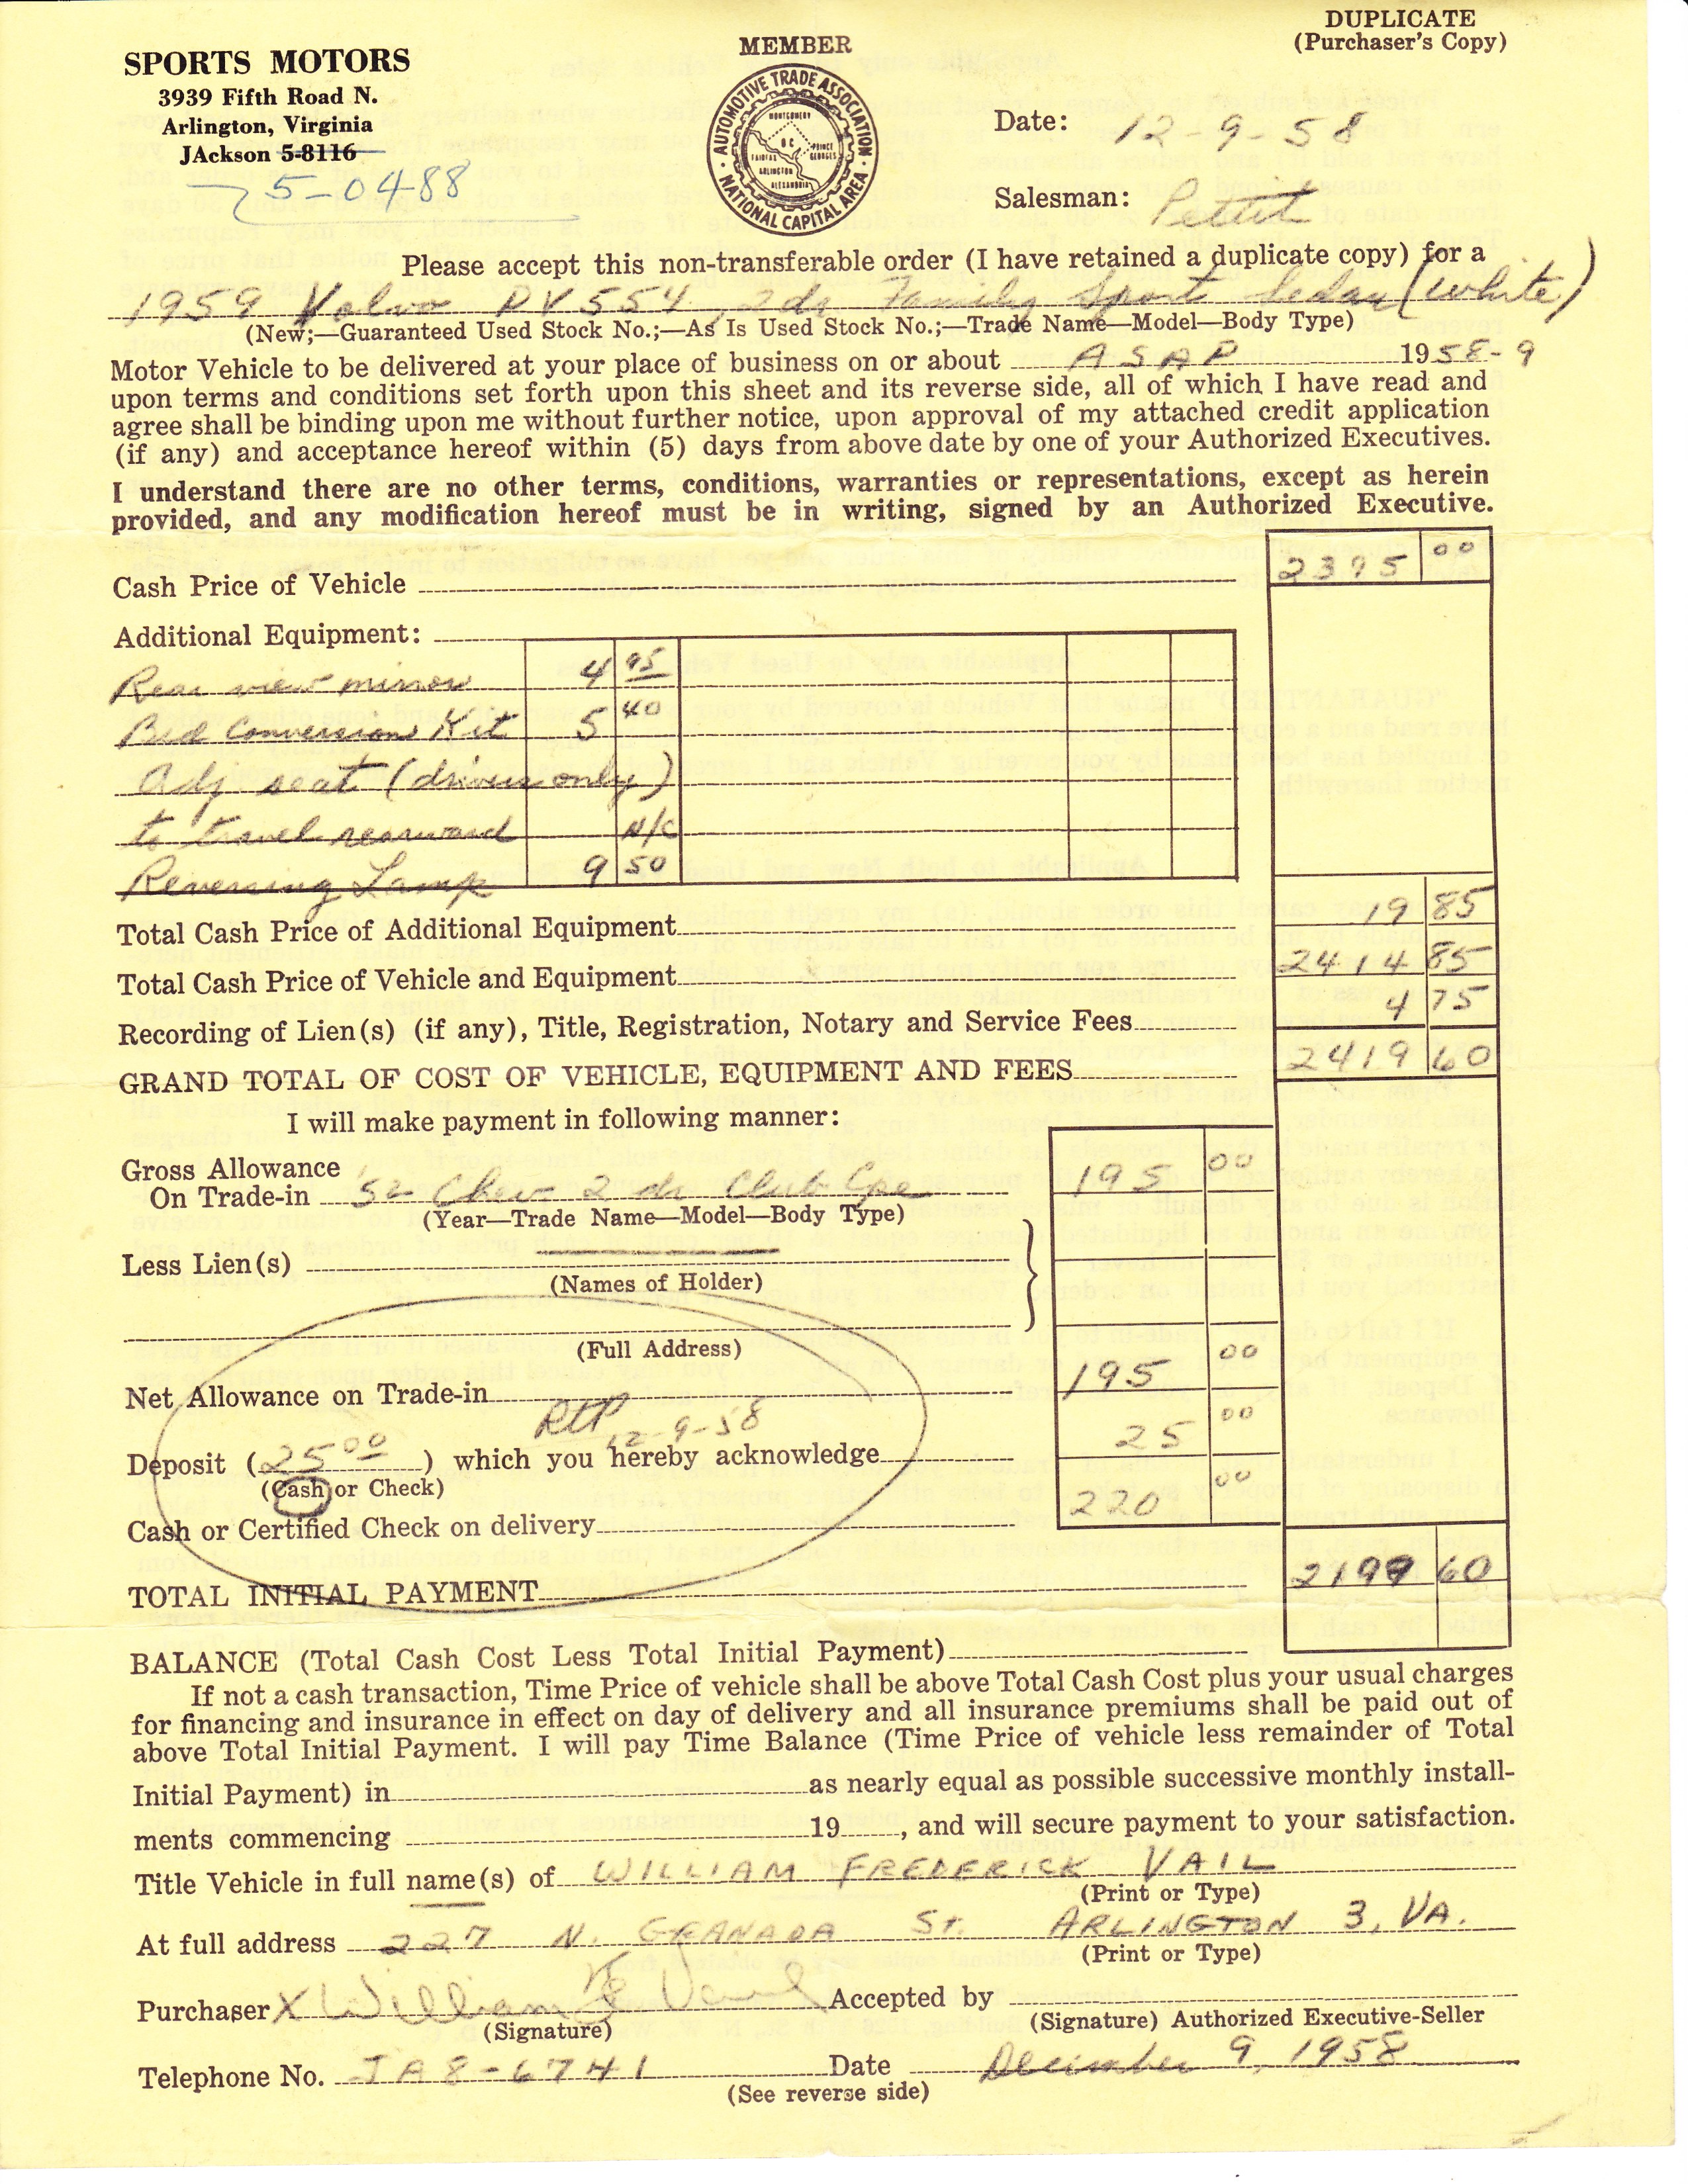 DUPLICATE
(Purchaser's Copy)
SPORTS MOTORS
3939 Fifth Road N.
Arlington, Virginia
JAckson 5-8116
5-0488
MEMBER
AUTOMOTIVE TRADE ASSOCIATION
NATIONAL CAPITAL AREA
MONTGOMERY
D C
PRINCE GEORGES
FAIRFAX
ARLINGTON
ALEXANDRIA
Date: 12-9-58
Salesman: Pettit
Please accept this non-transferable order (I have retained a duplicate copy) for a
1959 Volvo PV554, 2dr Family Sport Sedan (White)
(New;—Guaranteed Used Stock No.;—As Is Used Stock No.;—Trade Name—Model—Body Type)
Motor Vehicle to be delivered at your place of business on or about ASAP 1958-9
upon terms and conditions set forth upon this sheet and its reverse side, all of which I have read and
agree shall be binding upon me without further notice, upon approval of my attached credit application
(if any) and acceptance hereof within (5) days from above date by one of your Authorized Executives.
I understand there are no other terms, conditions, warranties or representations, except as herein
provided, and any modification hereof must be in writing, signed by an Authorized Executive.
Cash Price of Vehicle 2395 00
Additional Equipment:
Rear view mirror 4 95
Bed Conversion Kit 5 40
Adj seat (drivers only)
to travel rearward N/C
Reversing Lamp 9 50
Total Cash Price of Additional Equipment 19 85
Total Cash Price of Vehicle and Equipment 2414 85
Recording of Lien(s) (if any), Title, Registration, Notary and Service Fees 4 75
GRAND TOTAL OF COST OF VEHICLE, EQUIPMENT AND FEES 2419 60
I will make payment in following manner:
Gross Allowance
On Trade-in '52 Chev 2 dr Club Cpe 195 00
(Year—Trade Name—Model—Body Type)
Less Lien(s)
(Names of Holder)
(Full Address)
Net Allowance on Trade-in 195 00
RHP 12-9-58
Deposit (25 00) which you hereby acknowledge 25 00
(Cash or Check)
Cash or Certified Check on delivery 220 00
TOTAL INITIAL PAYMENT 2199 60
BALANCE (Total Cash Cost Less Total Initial Payment)
If not a cash transaction, Time Price of vehicle shall be above Total Cash Cost plus your usual charges
for financing and insurance in effect on day of delivery and all insurance premiums shall be paid out of
above Total Initial Payment. I will pay Time Balance (Time Price of vehicle less remainder of Total
Initial Payment) in as nearly equal as possible successive monthly install-
ments commencing 19 , and will secure payment to your satisfaction.
Title Vehicle in full name(s) of WILLIAM FREDERICK VAIL
(Print or Type)
At full address 227 N. GRANADA St. ARLINGTON 3, VA.
(Print or Type)
Purchaser X William F Vail Accepted by
(Signature) (Signature) Authorized Executive-Seller
Telephone No. JA8-6741 Date December 9, 1958
(See reverse side)